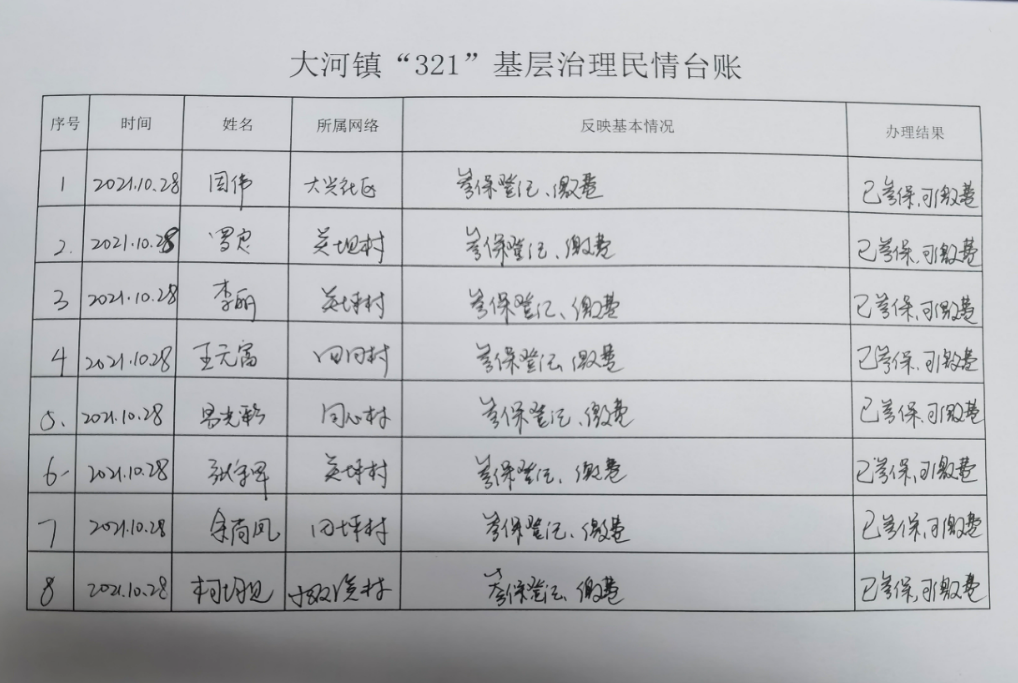 大河镇“321”基层治理民情台账
序号 时间 姓名 所属网络 反映基本情况 办理结果
1 2021.10.28 周伟 大兴社区 参保登记、缴费 已参保,可缴费
2. 2021.10.28 英坪村 参保登记、缴费 已参保,可缴费
3 2021.10.28 李丽 英坪村 参保登记、缴费 已参保,可缴费
4 2021.10.28 王元富 村 参保登记、缴费 已参保,可缴费
5. 2021.10.28 同心村 参保登记、缴费 已参保,可缴费
6- 2021.10.28 英坪村 参保登记、缴费 已参保,可缴费
7 2021.10.28 余尚凤 田坪村 参保登记、缴费 已参保,可缴费
8 2021.10.28 村 参保登记、缴费 已参保,可缴费